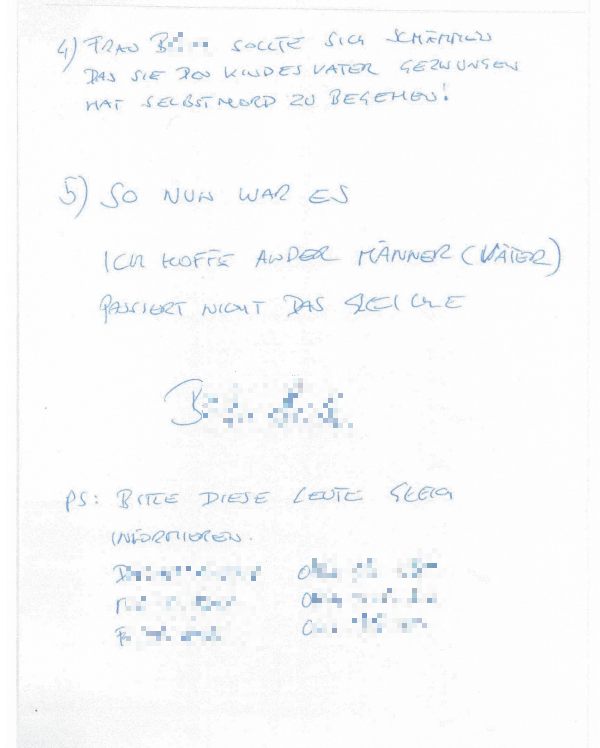 4) FRAU B SOLLTE SICH SCHÄMMEN
DAS SIE DEN KINDESVATER GEZWUNGEN
HAT SELBSTMORD ZU BEGEHEN!
5) SO NUN WAR ES
ICH HOFFE ANDER MÄNNER (VÄTER)
PASSIERT NICHT DAS GLEICHE
B
PS: BITTE DIESE LEUTE GLEICH
INFORMIEREN.